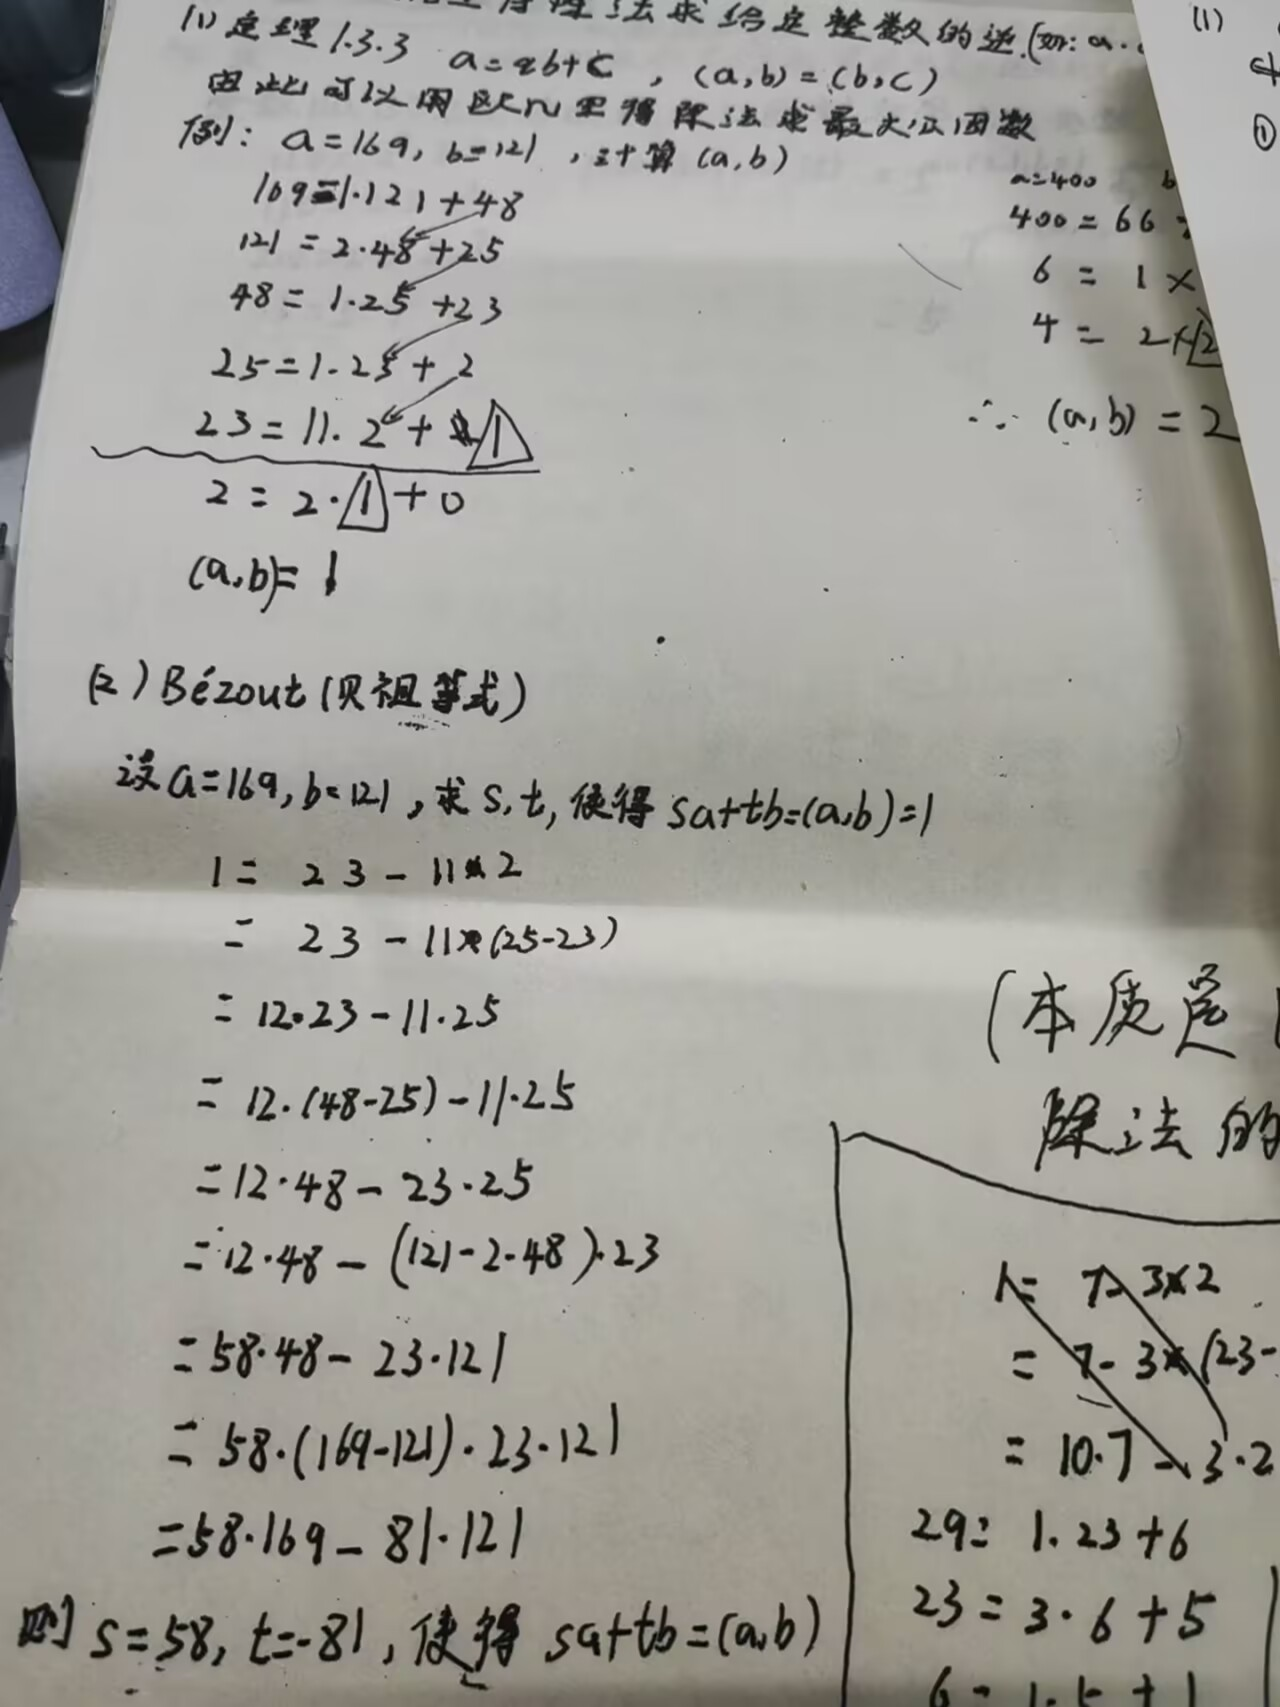 法求给定整数的逆.(如: a.
(1) 定理1.3.3 a=qb+c , (a,b)=(b,c)
由此可以用欧几里得除法求最大公因数
例: a=169, b=121 , 计算 (a,b)
169=1·121+48
121=2·48+25
48=1·25+23
25=1·23+2
23=11·2+1
2=2·1+0
(a,b)=1
(1)
①
a=400 b
400=66
6=1×
4=2×2
∴ (a,b)=2
(2) Bézout (贝祖等式)
设a=169, b=121, 求s, t, 使得 sa+tb=(a,b)=1
1= 23-11×2
= 23-11×(25-23)
=12·23-11·25
=12·(48-25)-11·25
=12·48-23·25
=12·48-(121-2·48)·23
=58·48-23·121
=58·(169-121)·23·121
=58·169-81·121
则 s=58, t=-81, 使得 sa+tb=(a,b)
(本质是
除法的
1= 7-3×2
= 7-3×(23-
= 10·7-3·2
29=1·23+6
23=3·6+5
6=1·5+1